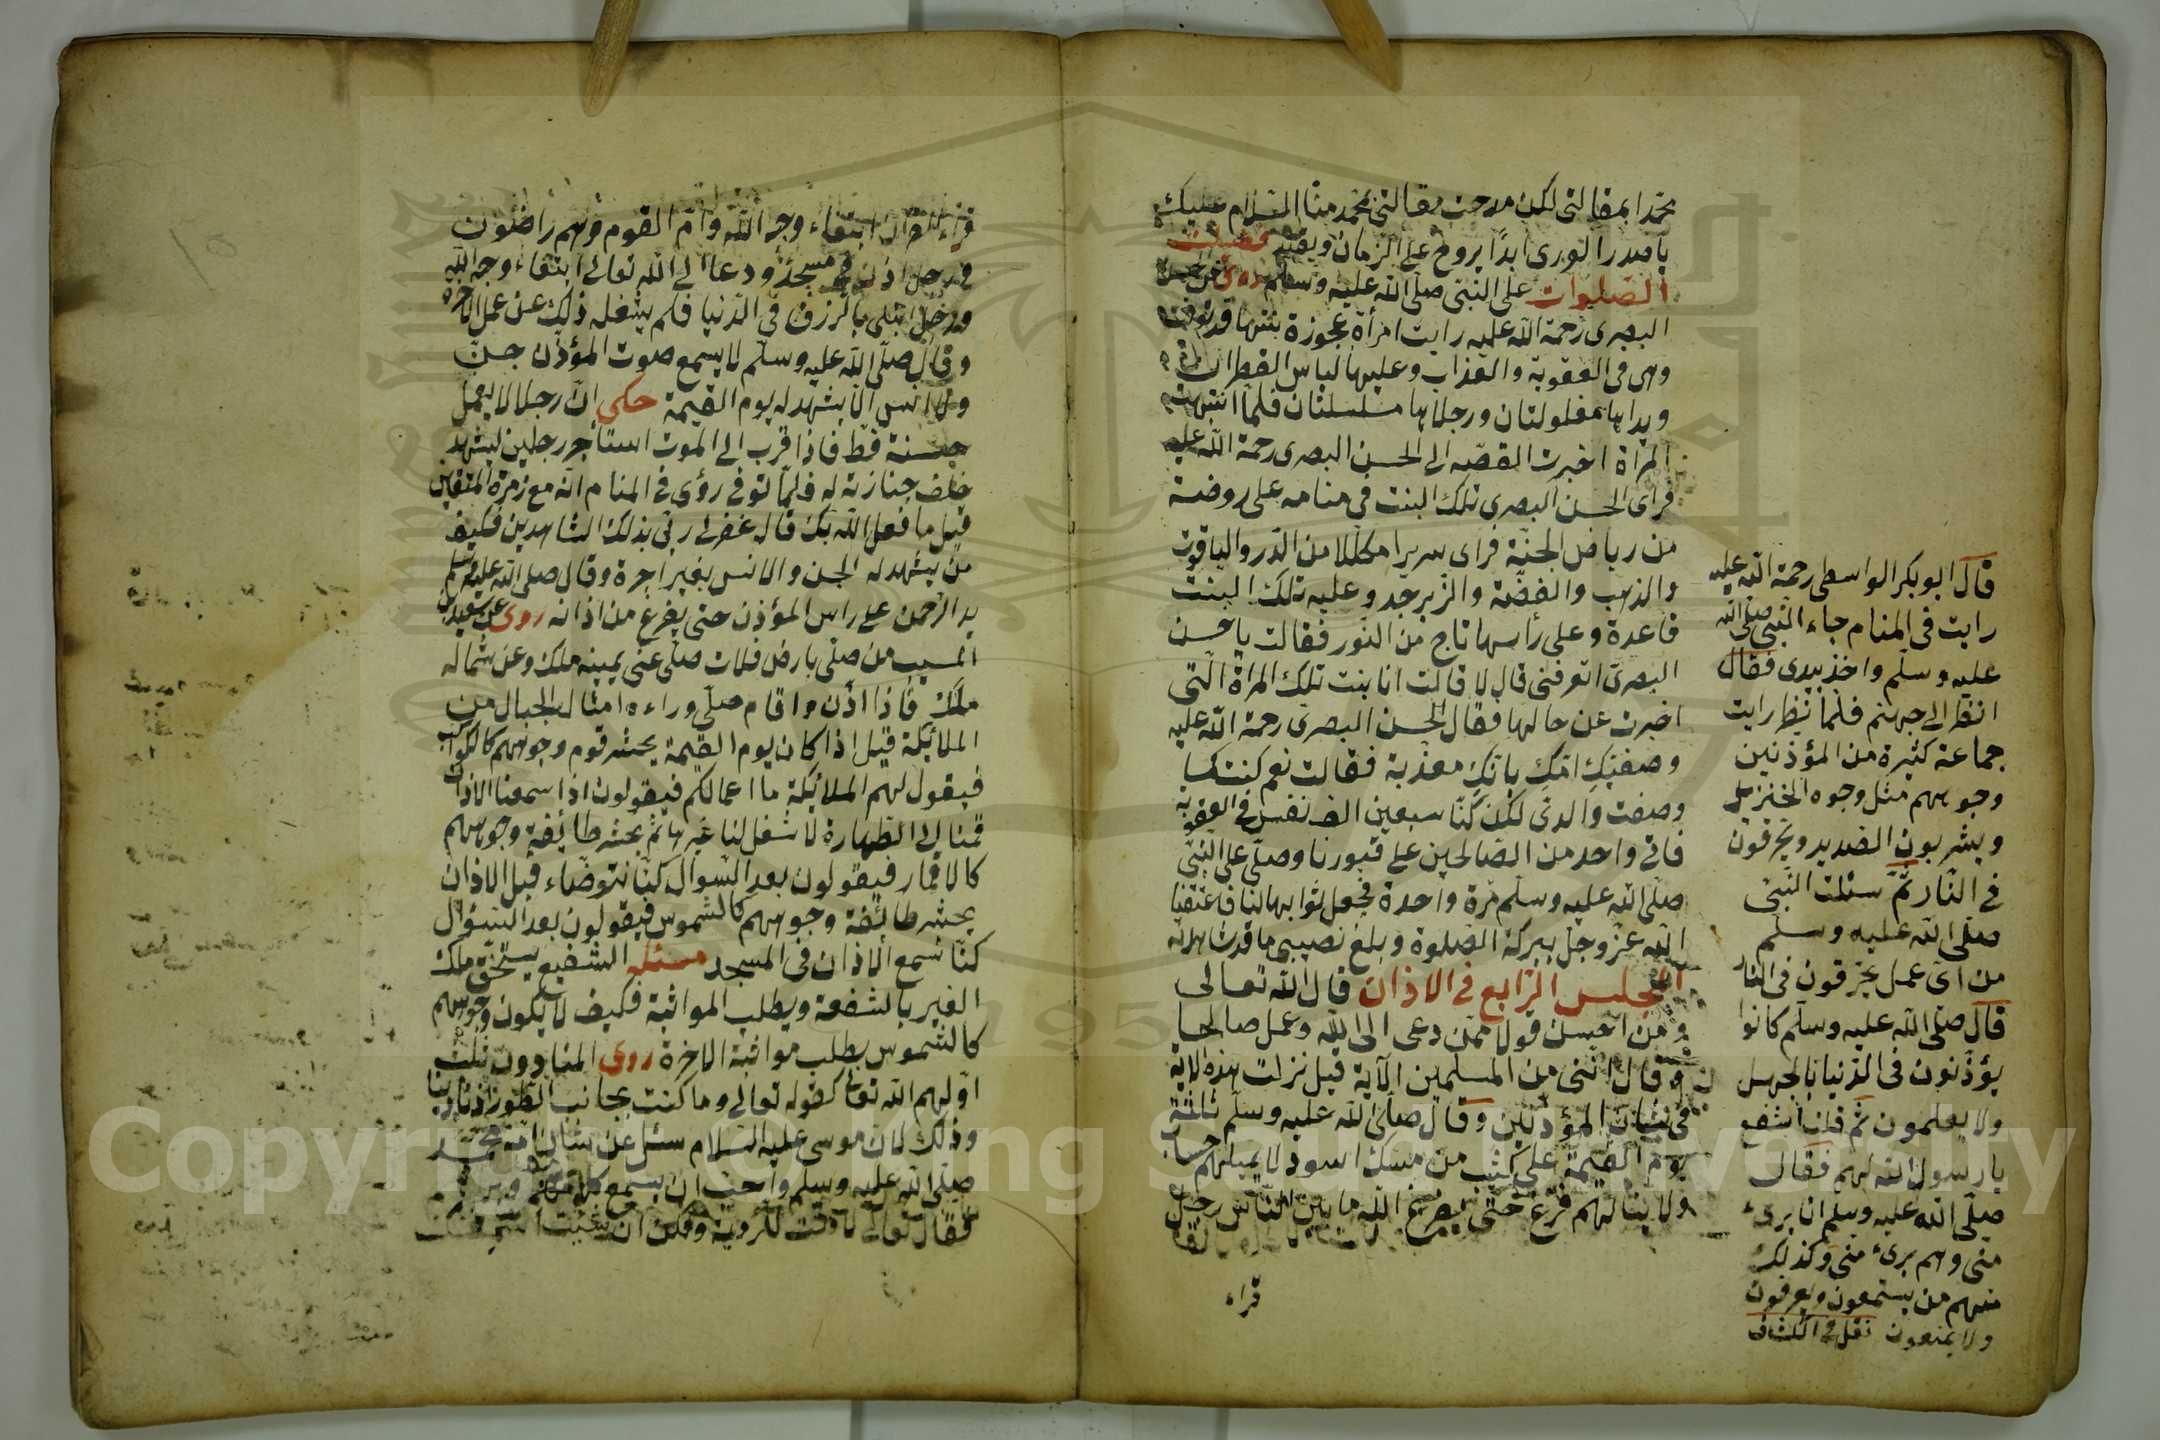 محمدا بمقالتى لكن مدحت مقالتى بمحمد منا السلام عليك
يا صدر الورى ابدًا يروح على الزمان و فضيلت
الصلوات على النبى صلى الله عليه وسلم روى عن الحسن
البصرى رحمة الله عليه رايت امرأة عجوزة بنتها قد توفت
وهى فى العقوبة والعذاب وعليها لباس القطران
ويداها مغلولتان ورجلاها مسلسلتان فلما انتبهت
المراة اخبرت القصه الى الحسن البصرى رحمة الله عليه
فراى الحسن البصرى تلك البنت فى منامه على روضة
من رياض الجنة فراى سريرا مكللا من الدر والياقوت
والذهب والفضة والزبرجد وعليه تلك البنت
قاعدة وعلى رأسها تاج من النور فقالت يا حسن
البصرى اتعرفنى قال لا قالت انا بنت تلك المراة التى
اخبرت عن حالها فقال الحسن البصرى رحمة الله عليه
وصفتك امك بانك معذبة فقالت نعم كنت كما
وصفت والدتى لكن كنا سبعين الف نفس فى العقوبة
فاتى واحد من الصالحين على قبورنا وصلى على النبى
صلى الله عليه وسلم مرة واحدة فجعل ثوابها لنا فاعتقنا
الله عز وجل ببركة الصلوة وبلغ نصيبى ما قد شاهدته
المجلس الرابع فى الاذان قال الله تعالى
ومن احسن قولا ممن دعى الى الله وعمل صالحا
وقال اننى من المسلمين الآية قيل نزلت هذه الاية
فى شان المؤذنين وقال صلى الله عليه وسلم ثلثة
يوم القيمة على كثب من مسك اسود لا يهيلهم حساب
ولا ينالهم فزع حتى يفرغ الله ما بين الناس رجل
قراء
قال ابو بكر الواسطى رحمة الله عليه
رايت فى المنام جاء النبى صلى الله
عليه وسلم واخذ بيدى فقال
انظر الى جهنم فلما نظر رايت
جماعة كثيرة من المؤذنين
وجوههم مثل وجوه الخنزير
ويشربون الصديد ويحرقون
فى النار ثم سئلت النبى
صلى الله عليه وسلم
من اى عمل يحرقون فى النار
قال صلى الله عليه وسلم كانوا
يؤذنون فى الدنيا بالجهل
ولا يعلمون ثم قلت اشفع
يا رسول الله لهم فقال
صلى الله عليه وسلم انا برىء
منى وهم برىء منى وكذلك
منهم من يستمعون ويعرفون
ولا يمنعون نقل فى الكشاف
قراء القران ابتغاء وجه الله وام القوم وهم راضون
ورجل اذن فى مسجد ودعا الى الله تعالى ابتغاء وجه الله
ورجل ابتلى بالرزق فى الدنيا فلم يشغله ذلك عن عمل الاخرة
وقال صلى الله عليه وسلم لا يسمع صوت المؤذن جن
ولا انس الا يشهد له يوم القيمة حكى ان رجلا لا يعمل
حسنة قط فاذا قرب الى الموت استأجر رجلين ليشهد
خلف جنازته له فلما توفى رؤى فى المنام انه مع زمرة المتقين
قيل ما فعل الله بك قال غفر لى ربى بذلك الشاهدين فكيف
من يشهد له الجن والانس بغير اجرة وقال صلى الله عليه وسلم
يد الرحمن على راس المؤذن حتى يفرغ من اذانه روى عن سعيد بن
المسيب من صلى بارض فلات صلى عن يمينه ملك وعن شماله
ملك فاذا اذن واقام صلى وراءه امثال الجبال من
الملائكة قيل اذا كان يوم القيمة يحشر قوم وجوههم كالكواكب
فيقول لهم الملائكة ما اعمالكم فيقولون اذا سمعنا الاذان
قمنا الى الطهارة لا شغل لنا غيرها ثم يحشر طائفة وجوههم
كالاقمار فيقولون بعد السوال كنا نتوضاء قبل الاذان
يحشر طائفة وجوههم كالشموس فيقولون بعد السؤال
كنا نسمع الاذان فى المسجد مسئله الشفيع يستحق ملك
الغير بالشفعة ويطلب المواثبة فكيف لا يكون وجوههم
كالشموس بطلب مواثبة الاخرة روى المنادون ثلث
اولهم الله تعالى كقوله تعالى وما كنت بجانب الطور اذ نادينا
وذلك لان موسى عليه السلام سئل عن شان امة محمد
صلى الله عليه وسلم واحب ان يسمع كلامهم
فقال تعالى لا وقت للرؤية ولكن ان شئت